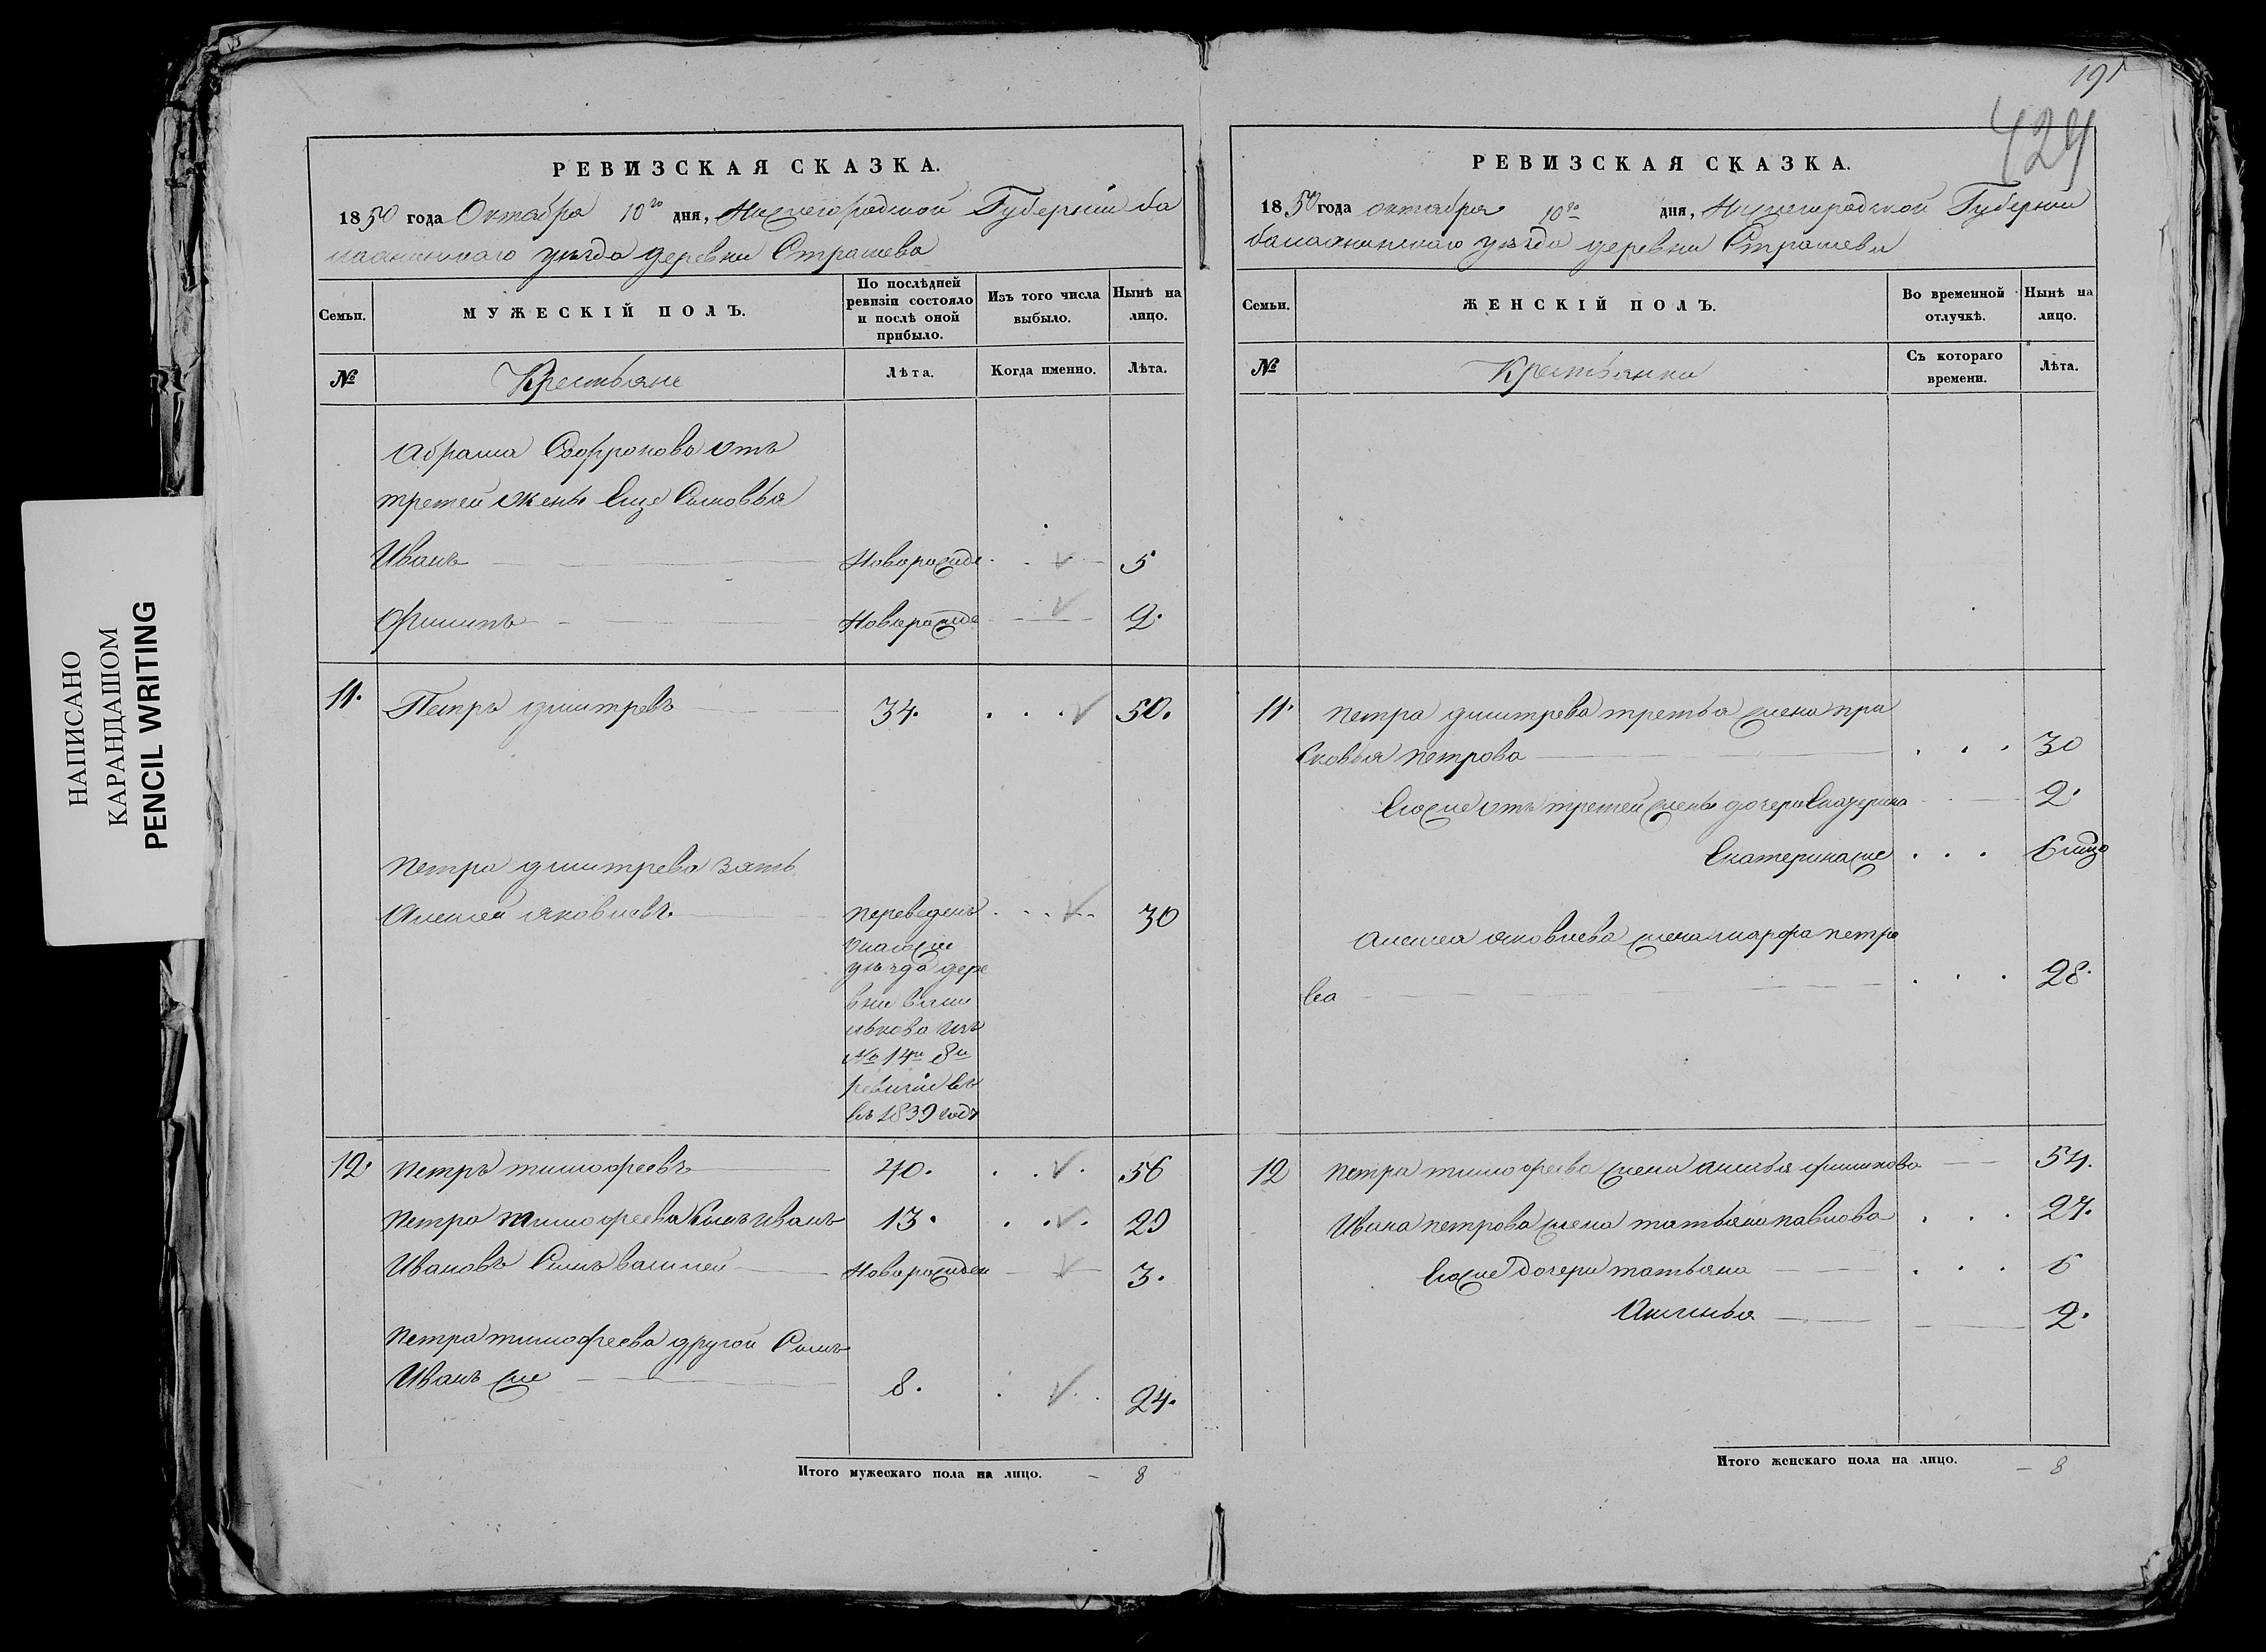 191
424
НАПИСАНО
КАРАНДАШОМ
PENCIL WRITING
РЕВИЗСКАЯ СКАЗКА.
1850 года Октября 10го дня, Нижегородской Губернии ба
лахнинскаго уезда деревни Страшева
Семьи. МУЖЕСКІЙ ПОЛЪ. По послѣдней ревизіи состояло и послѣ оной прибыло. Изъ того числа выбыло. Нынѣ на лицо.
№ Крестьяне Лѣта. Когда именно. Лѣта.
Абрама Софронова отъ
третей жены еще Сыновья
Иванъ Новорожде 5
Филипъ Новорожде 2.
11. Петръ дмитревъ 34. 50.
Петра дмитрева зять
Алексей яковлевъ переведенъ 30
уезда дере
вни
№ 14й 8й
ревизіи въ
въ 1839 годъ
12. Петръ тимофеевъ 40. 56
Петра тимофеева Сынъ иванъ 13. 29
Ивановъ Сынъ василей Новорожден 3.
Петра тимофеева другой Сынъ
Иванъ же 8. 24.
Итого мужескаго пола на лицо. 8
РЕВИЗСКАЯ СКАЗКА.
1850 года октября 10го дня, Нижегородской Губернии
балахнинскаго уезда деревни Страшева
Семьи. ЖЕНСКІЙ ПОЛЪ. Во временной отлучкѣ. Нынѣ на лицо.
№ Крестьянки Съ котораго времени. Лѣта.
11. Петра дмитрева третья жена пра
сковья петрова 30
Егоже отъ третей жены дочери Екатерина 2.
Екатерина же 6
Алексея яковлева жена марфа петро
ва 28.
12 Петра тимофеева жена анисья филипова 54.
Ивана петрова жена татьяна павлова 27.
Егоже Дочери татьяна 6
Аксинья 2.
Итого женскаго пола на лицо. 8